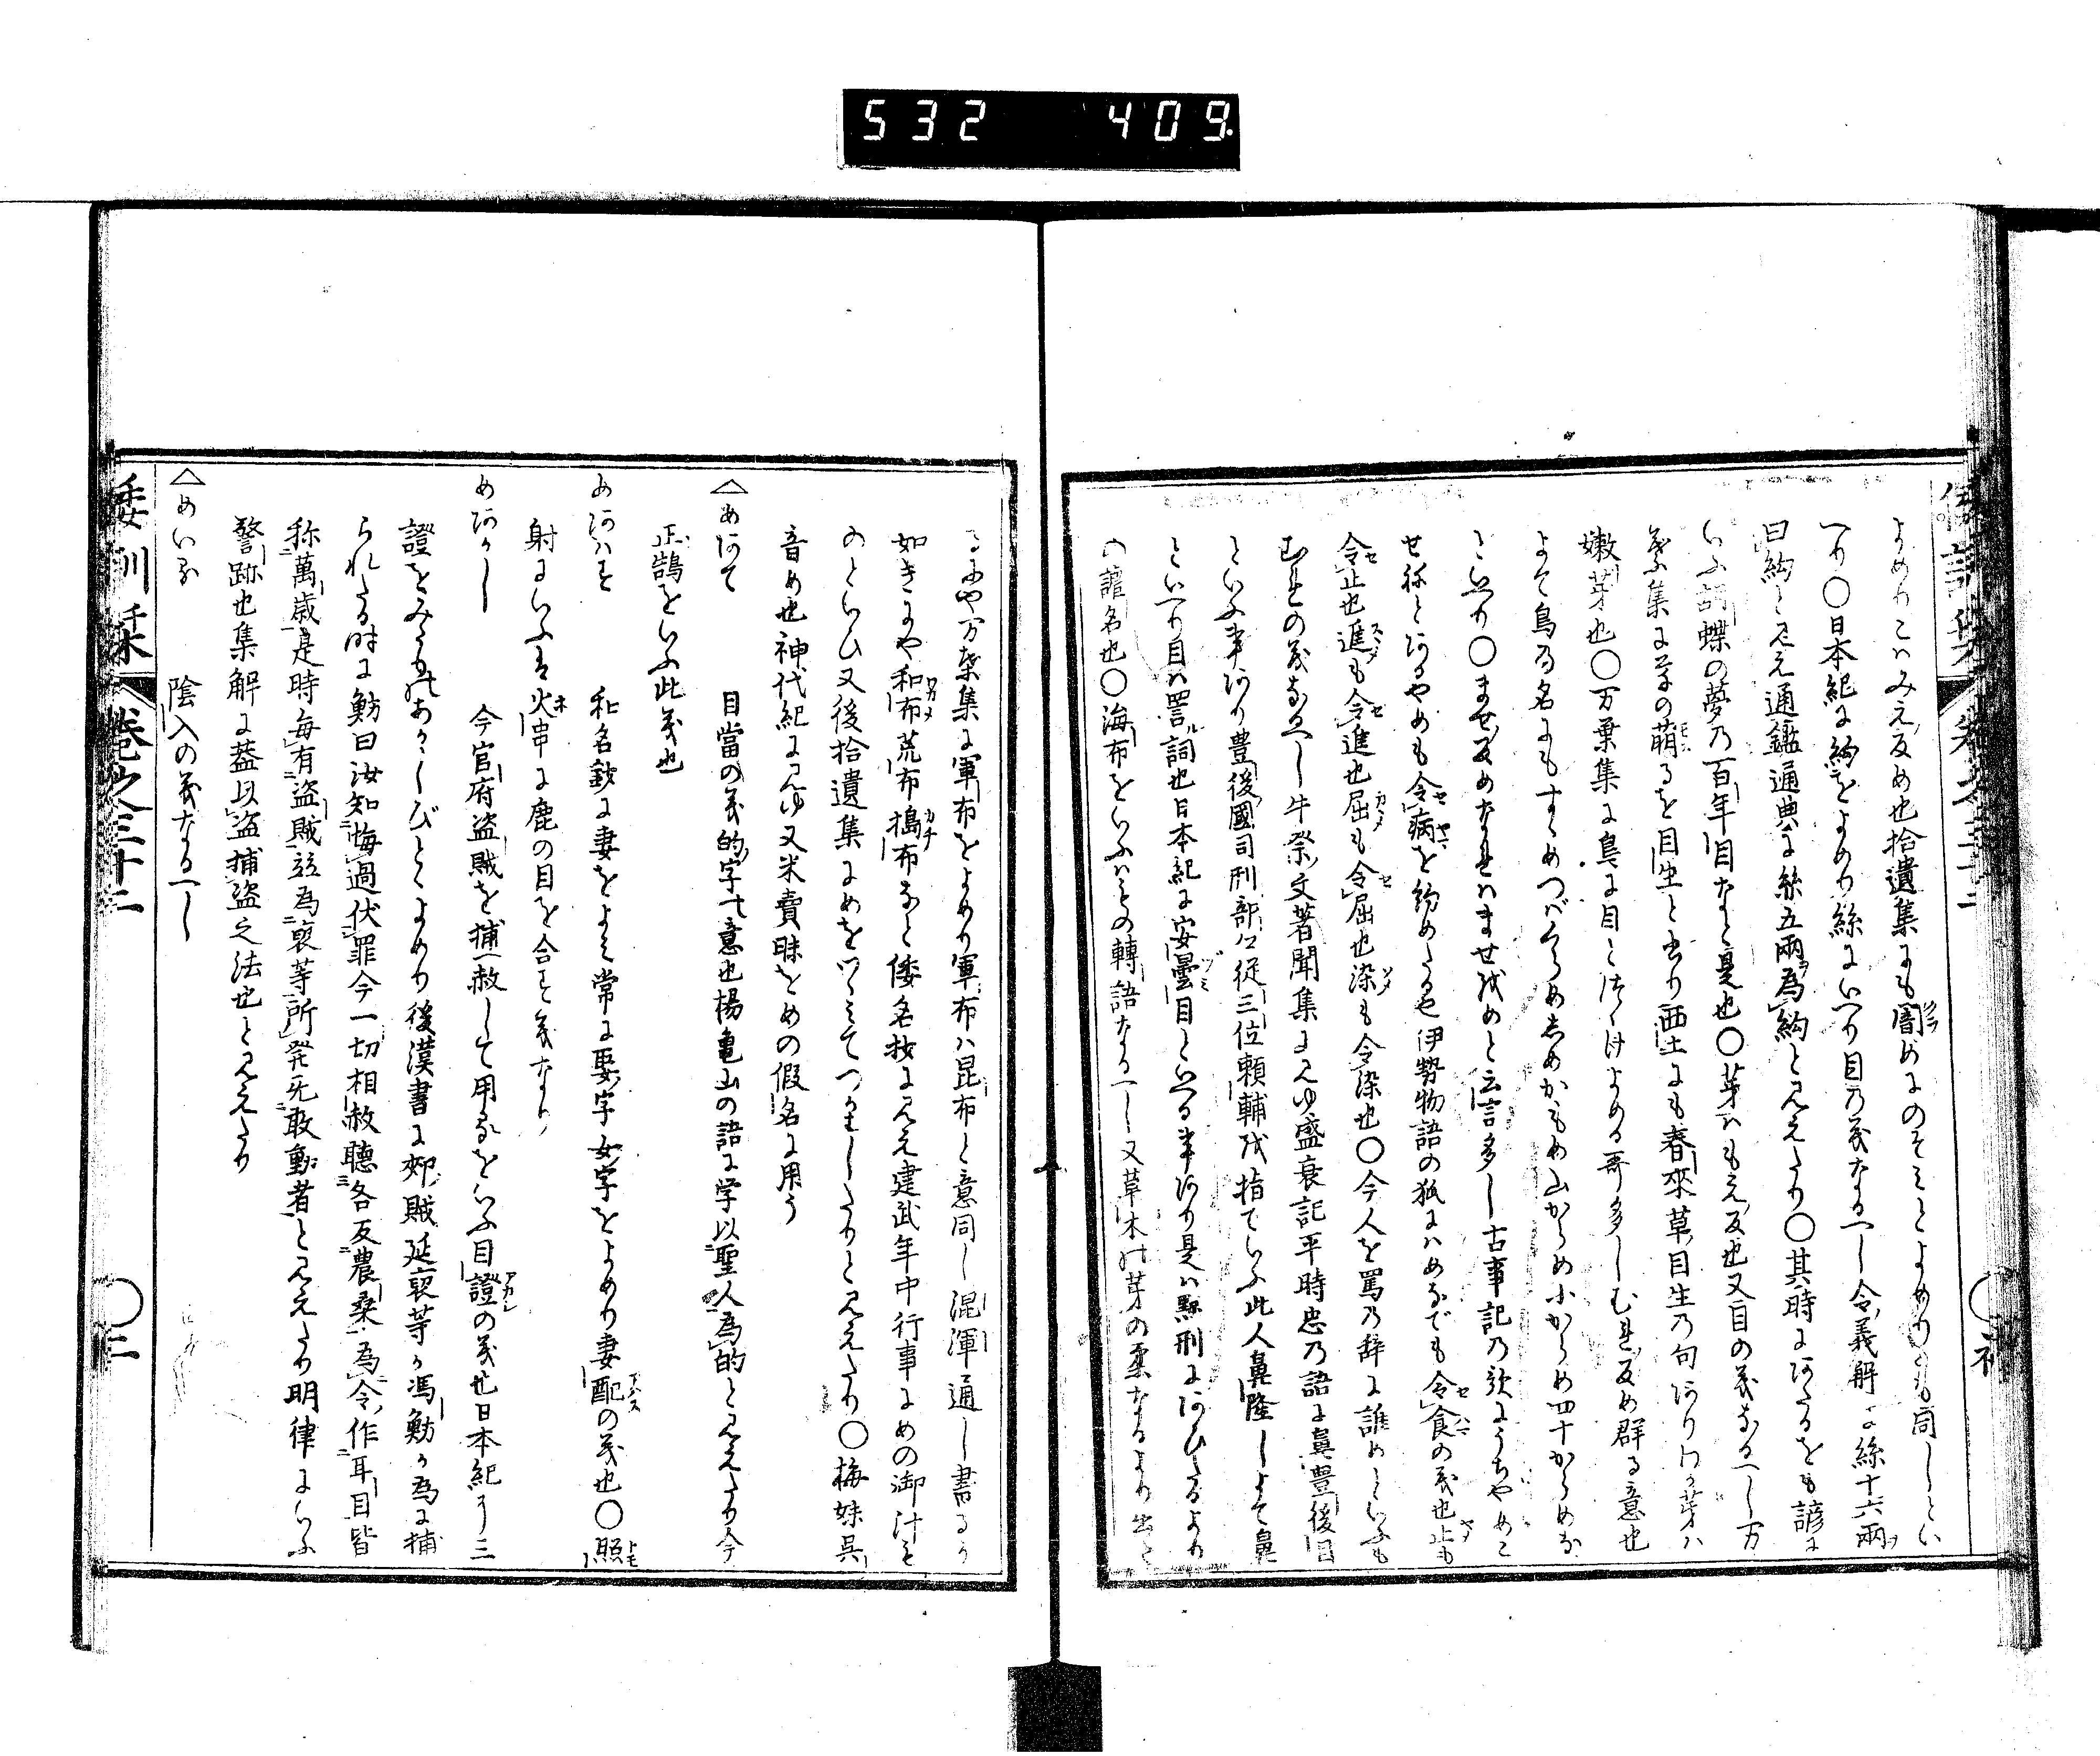 532 409
よめりこハみえ反め也拾遺集にも闇めにのそミとよめりとも同しとい
へり〇日本紀に絇をよめり絲にいへり目乃義なるへし令義解に絲十六兩
曰絇と見え通鑑通典に絲五兩為絇と見えたり〇其時にあたるをも諺に
いふ胡蝶の夢乃百年目なと是也〇芽ハもえ反也又目の義なるへし万
葉集に草の萌るを目生と書り西土にも春來草目生乃句ありわか芽ハ
嫩芽也〇万葉集に鳥に目とつけよめる哥多しむれ反め群る意也
よて鳥乃名にもすゝめつバくらめかもめ山からめ小からめ四十からめな
といへり〇ませ反めなれハませ我めと云言多し古事記乃歌にうちやめこ
せねとあるやめも令病を約めたるや伊勢物語の狐にハめなでも令食の義也止も
令止也進も令進也屈も令屈也染も令染也〇今人を罵乃辞に誰めといふも
むれの義なるへし牛祭文著聞集に見ゆ盛衰記平時忠乃語に鼻豊後目
といふ事あり豊後國司刑部公從三位頼輔我指ていふ此人鼻隆しよて鼻
といへり目ハ詈詞也日本紀に安曇目といへる事あり是ハ黥刑にあひたるより
の謔名也〇海布をいふハもの轉語なるへし又草木の芽の柔なるより出と
るにや万葉集に軍布をよめり軍布ハ昆布と意同し混渾通し書るか
如きにや和布荒布搗布なと倭名抄に見え建武年中行事にめの御汁を
のとらひ又後拾遺集にめをつゝミてつかハしたりと見えたり〇梅妹呉
音め也神代紀に見ゆ又米賣昧をめの假名に用う
△めあて 目當の義的字の意也楊亀山の語に学以聖人為的と見えたり今
正鵠をいふ此義也
めあハす 和名鈔に妻をよミ常に娶字女字をよめり妻配の義也〇照
射にいふは火串に鹿の目を合す義なり
めあかし 今官府盗賊を捕へ赦して用るをいふ目證の義也日本紀に三
證をみたりのあかしびとゝよめり後漢書に郯賊延裒等か馮魴か為に捕
られたる時に魴曰汝知悔過伏罪今一切相赦聽各反農桑為令作耳目皆
称萬歳是時毎有盗賊並為裒等所発无敢動者と見えたり明律にいふ
警跡也集解に蓋以盗捕盗之法也と見えたり
△めいる 陰入の義なるへし
倭訓栞 巻之三十二 〇二